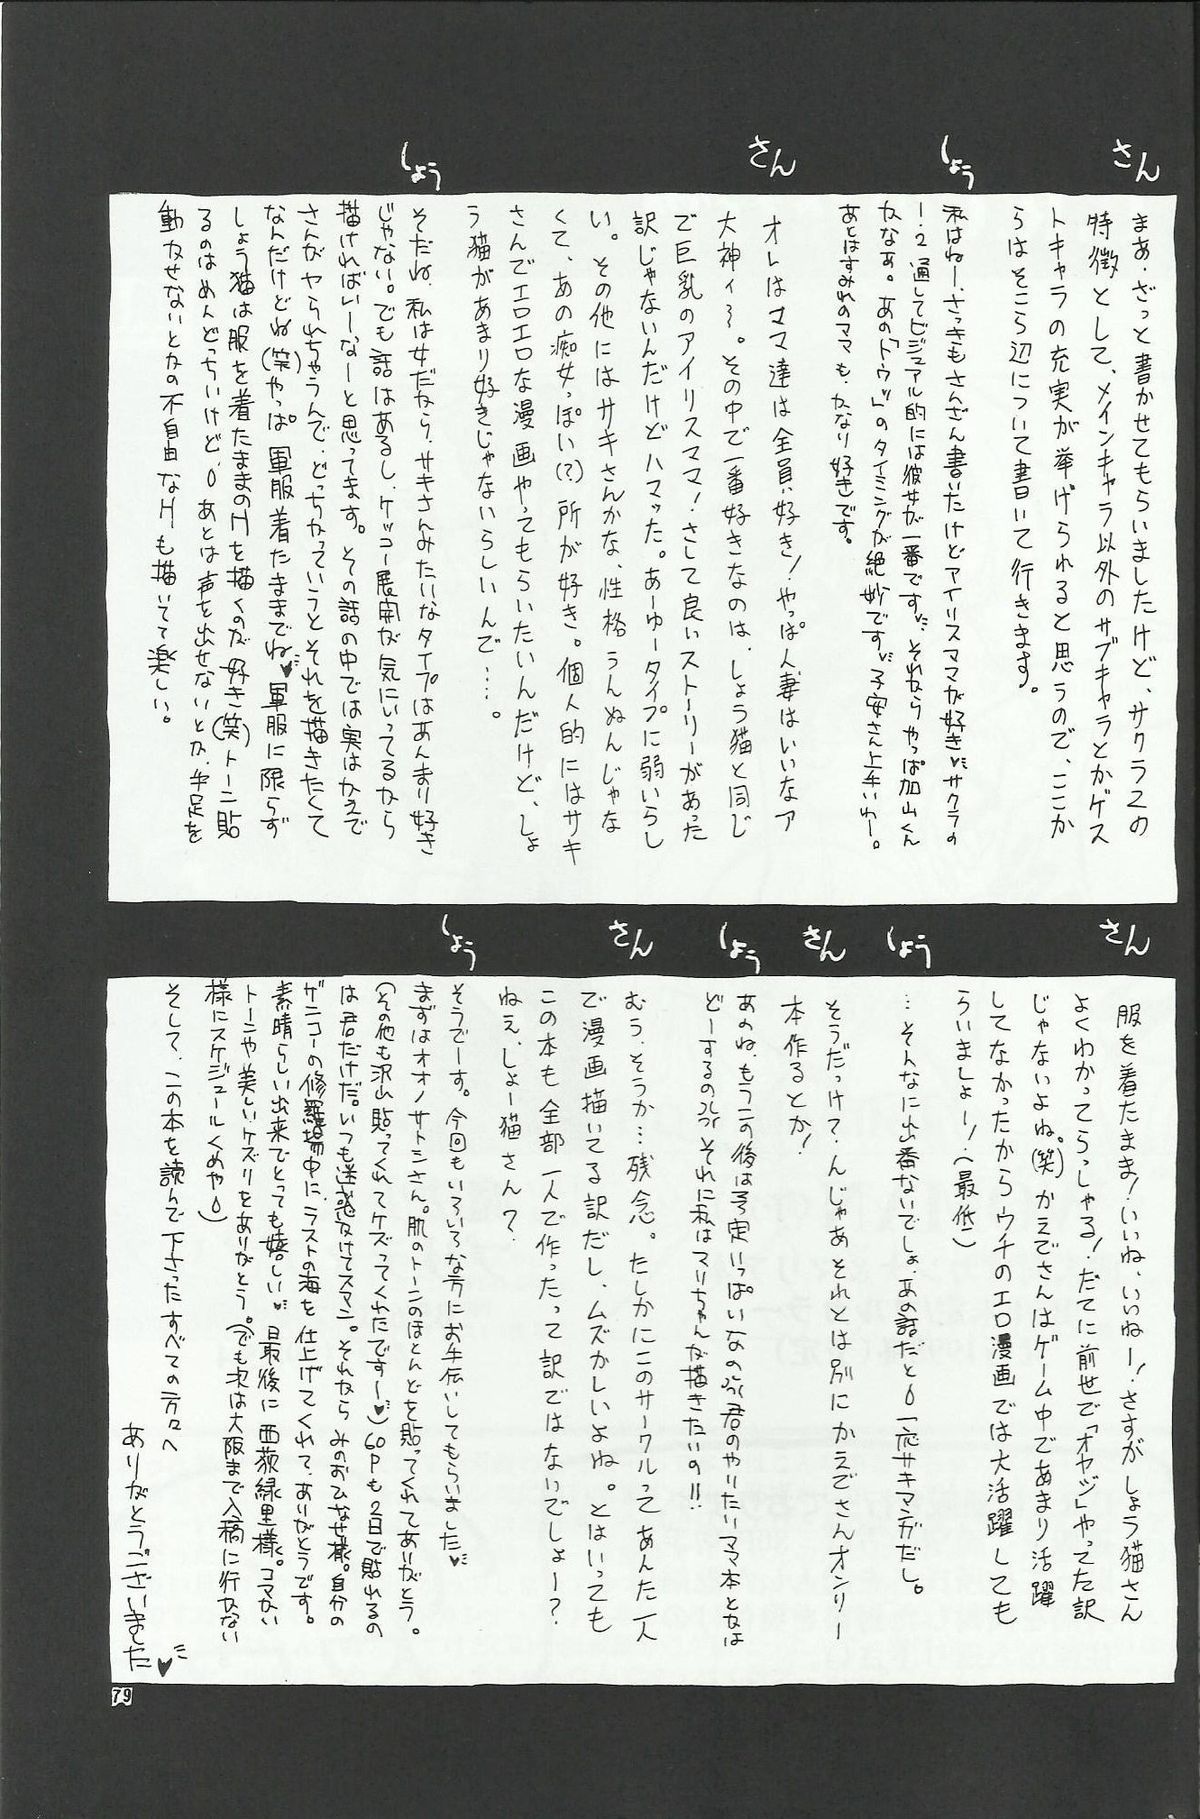 さん
まぁ、ざっと書かせてもらいましたけど、サクラ2の
特徴として、メインキャラ以外のサブキャラとかゲス
トキャラの充実が挙げられると思うので、ここか
らはそこら辺について書いて行きます。
しょう
私はねー、さっきもさんざん書いたけどアイリスママが好き♥サクラの
1・2通してビジュアル的には彼女が一番です♥それならやっぱ加山くん
かなぁ。あの「トウッ」のタイミングが絶妙です♥子安さん上手いわー。
あとはすみれのママも、かなり好きです。
さん
オレはママ達は全員好き!やっぱ人妻はいいなァ
大神ィ〜。その中で一番好きなのは、しょう猫と同じ
で巨乳のアイリスママ!さして良いストーリーがあった
訳じゃないんだけどハマった。あーゆータイプに弱いらし
い。その他にはサキさんかな、性格うんぬんじゃな
くて、あの痴女っぽい(?)所が好き。個人的にはサキ
さんでエロエロな漫画やってもらいたいんだけど、しょ
う猫があまり好きじゃないらしいんで‥‥。
しょう
そだね、私は女だから、サキさんみたいなタイプはあんまり好き
じゃない。でも話はあるし、ケッコー展開が気にいってるなら
描ければいーなーと思ってます。その話の中では実はかえで
さんがヤられちゃうんで、どっちかっていうとそれを描きたくて
なんだけどね(笑)やっぱ軍服着たままでね♥軍服に限らず
しょう猫は服を着たままのHを描くのが好き(笑)トーン貼
るのはめんどっちいけど。あとは声を出せないとか、手足を
動かせないとかの不自由なHも描いてて楽しい。
さん
服を着たまま!いいね、いいねー!さすがしょう猫さん
よくわかってらっしゃる!だてに前世で「オヤジ」やってた訳
じゃないよね。(笑)かえでさんはゲーム中であまり活躍
してなかったからウチのエロ漫画では大活躍しても
らいましょー!(最低)
しょう
…そんなに出番ないでしょ、あの話だと。一応サキマンガだし。
さん
そうだっけ?んじゃあそれとは別にかえでさんオンリー
本作るとか!
しょう
あのね、もうこの後は予定いっぱいなの。君のやりたいママ本とかは
どーするの。それに私はマリちゃんが描きたいの!!
さん
むう、そうか…残念。たしかにこのサークルってあんた一人
で漫画描いてる訳だし、ムズかしいよね。とはいっても
この本も全部一人で作ったって訳ではないでしょー?
ねぇ、しょー猫さん?
しょう
そうでーす。今回もいろいろな方にお手伝いしてもらいました♥
まずはオオノサトシさん。肌のトーンのほとんどを貼ってくれてありがとう。
(その他も沢山貼ってくれてケズってくれたですー♥)60Pも2日で貼れるの
は君だけだ。いつも迷惑かけてスマン。それからみのおひなせ様。自分の
ゲンコーの修羅場中に、ラストの海を仕上げてくれて、ありがとうです。
素晴らしい出来でとっても嬉しい♥最後に西荻緑里様。コマかい
トーンや美しいケズリをありがとう。(でも次は大阪まで入稿に行かない
様にスケジュールくめや)
そして、この本を読んで下さったすべての方々へ
ありがとうございました♥
79